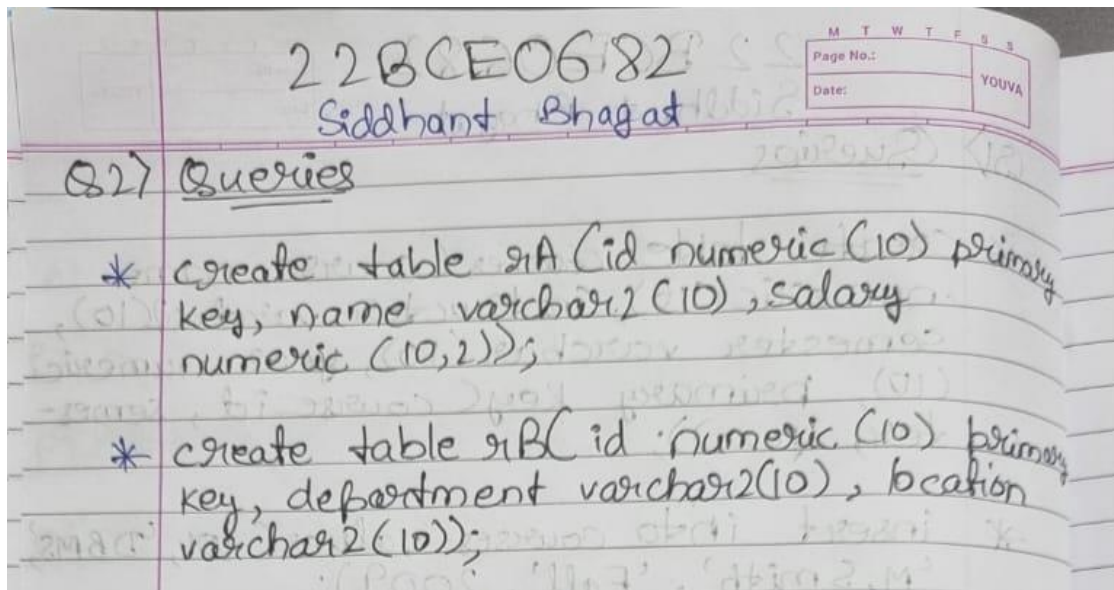 22BCE0682
Siddhant Bhagat
M T W T F S S
Page No.:
Date:
YOUVA
Q2) Queries
* create table rA (id numeric (10) primary
key, name varchar2 (10), salary
numeric (10,2));
* create table rB( id numeric (10) primary
key, department varchar2(10), location
varchar2 (10));